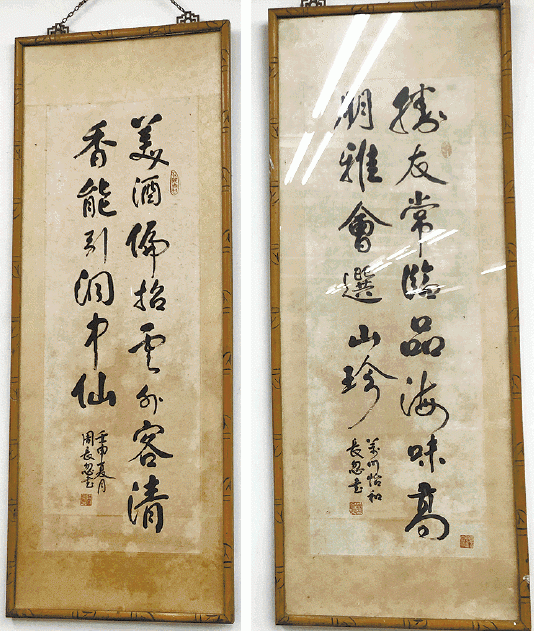 勝友常臨品海味高
朋雅會選山珍
怡和
長书
美酒偏招云外客清
香能引洞中仙
壬申夏月
周長书